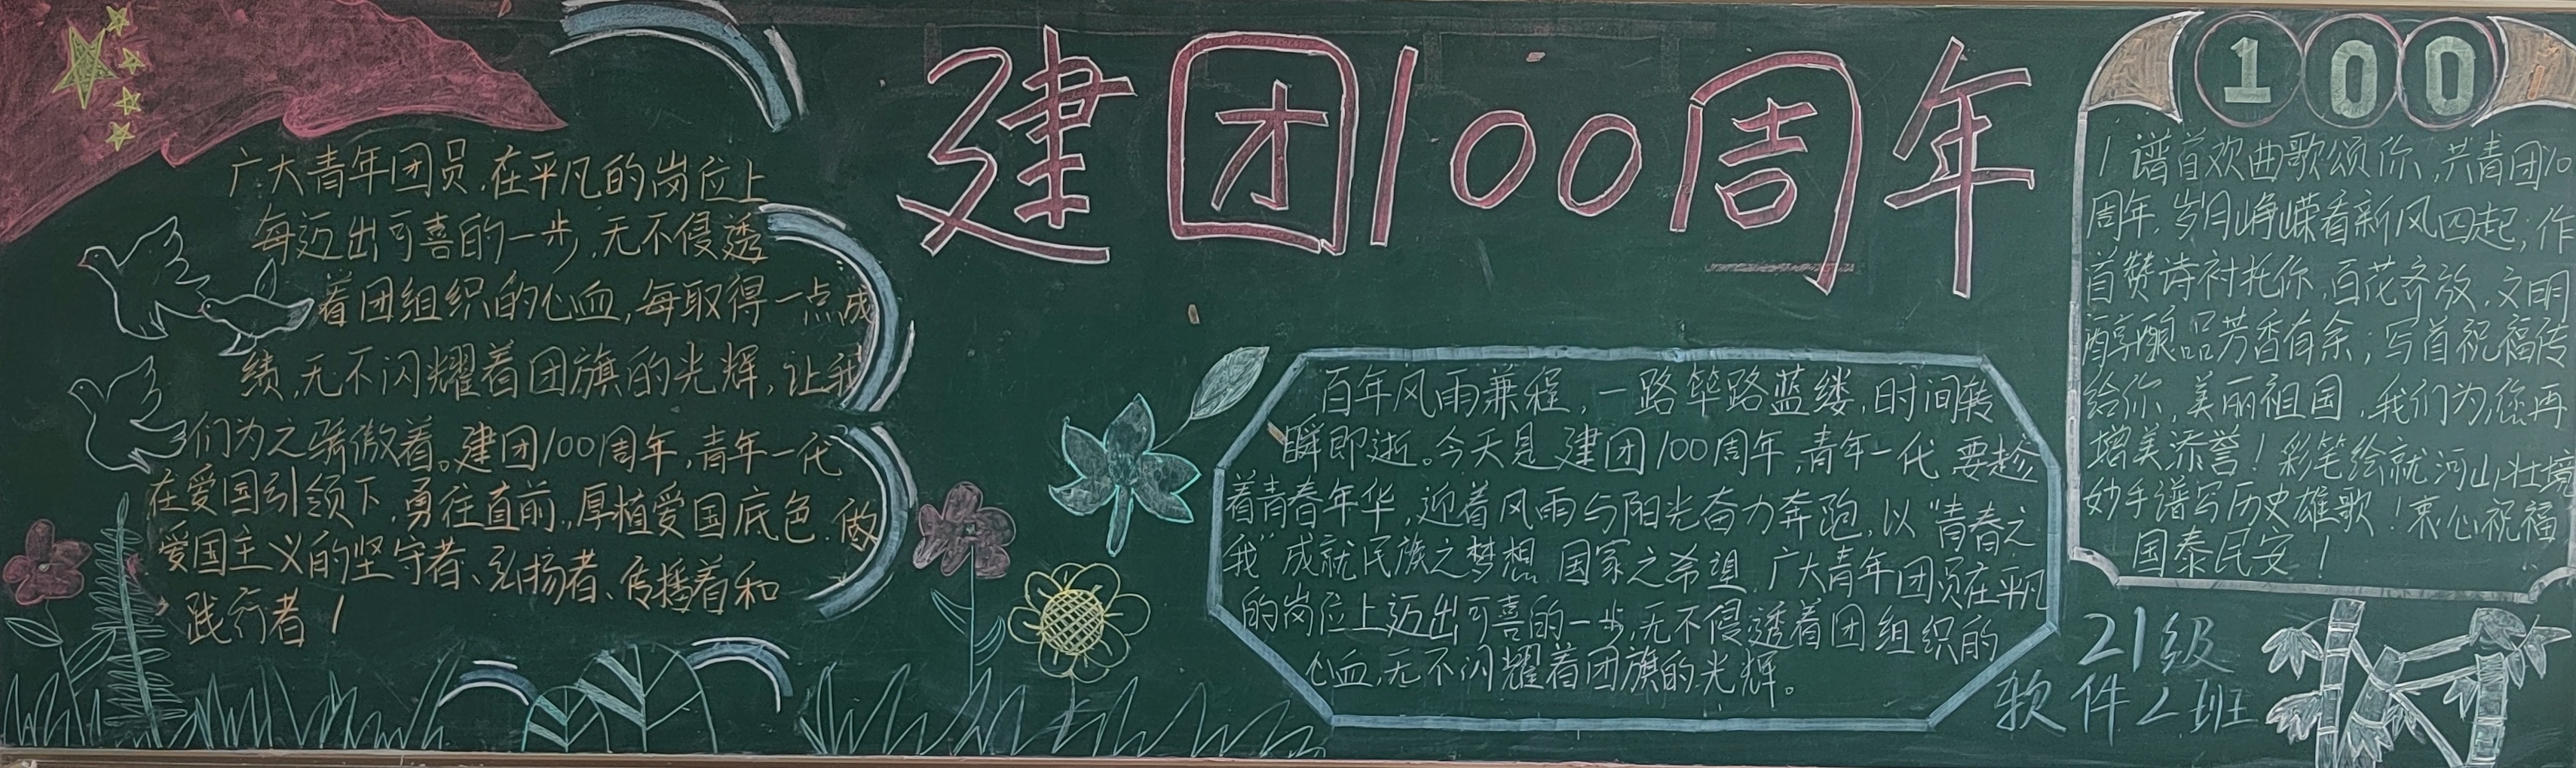 建团100周年
广大青年团员,在平凡的岗位上
每迈出可喜的一步,无不侵透
着团组织的心血,每取得一点成
绩,无不闪耀着团旗的光辉,让我
们为之骄傲着。建团100周年,青年一代
在爱国引领下,勇往直前,厚植爱国底色.做
爱国主义的坚守者、弘扬者、传播着和
践行者!
百年风雨兼程,一路筚路蓝缕,时间转
瞬即逝。今天是建团100周年,青年一代要趁
着青春年华,迎着风雨与阳光奋力奔跑,以“青春之
我”成就民族之梦想.国家之希望.广大青年团员在平凡
的岗位上迈出可喜的一步,无不侵透着团组织的
心血,无不闪耀着团旗的光辉。
100
谱首欢曲歌颂你,共青团10
周年,岁月峥嵘看新风四起;作
首赞诗衬托你,百花齐放,文明
醇酿品芳香有余;写首祝福传
给你,美丽祖国,我们为您再
增美添誉!彩笔绘就河山壮境
妙手谱写历史雄歌!衷心祝福
国泰民安!
21级
软件2班